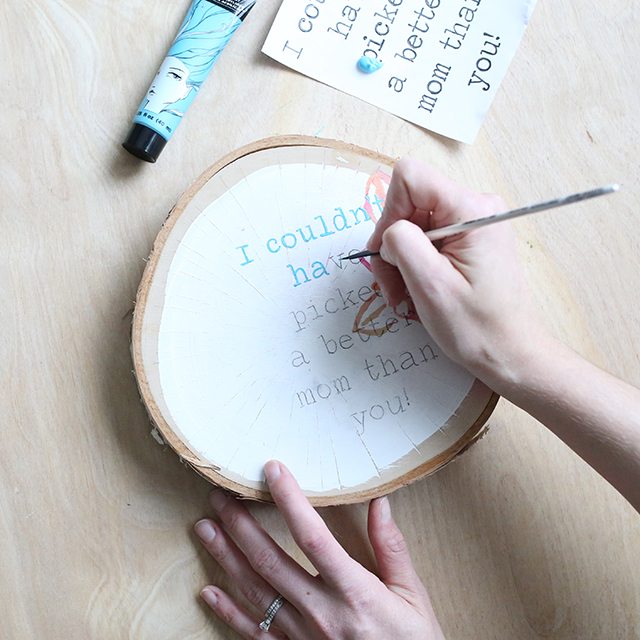 I could
ha
picke
a bette
mom than
you!
I couldn't
have
picke
a better
mom than
you!